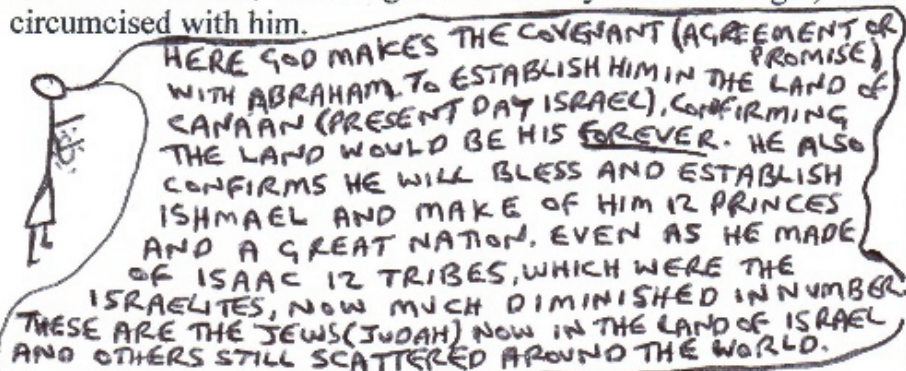 circumcised with him.
HERE GOD MAKES THE COVENANT (AGREEMENT OR
PROMISE)
WITH ABRAHAM. TO ESTABLISH HIM IN THE LAND OF
CANAAN (PRESENT DAY ISRAEL), CONFIRMING
THE LAND WOULD BE HIS FOREVER. HE ALSO
CONFIRMS HE WILL BLESS AND ESTABLISH
ISHMAEL AND MAKE OF HIM 12 PRINCES
AND A GREAT NATION. EVEN AS HE MADE
OF ISAAC 12 TRIBES, WHICH WERE THE
ISRAELITES, NOW MUCH DIMINISHED IN NUMBER.
THESE ARE THE JEWS (JUDAH) NOW IN THE LAND OF ISRAEL
AND OTHERS STILL SCATTERED AROUND THE WORLD.